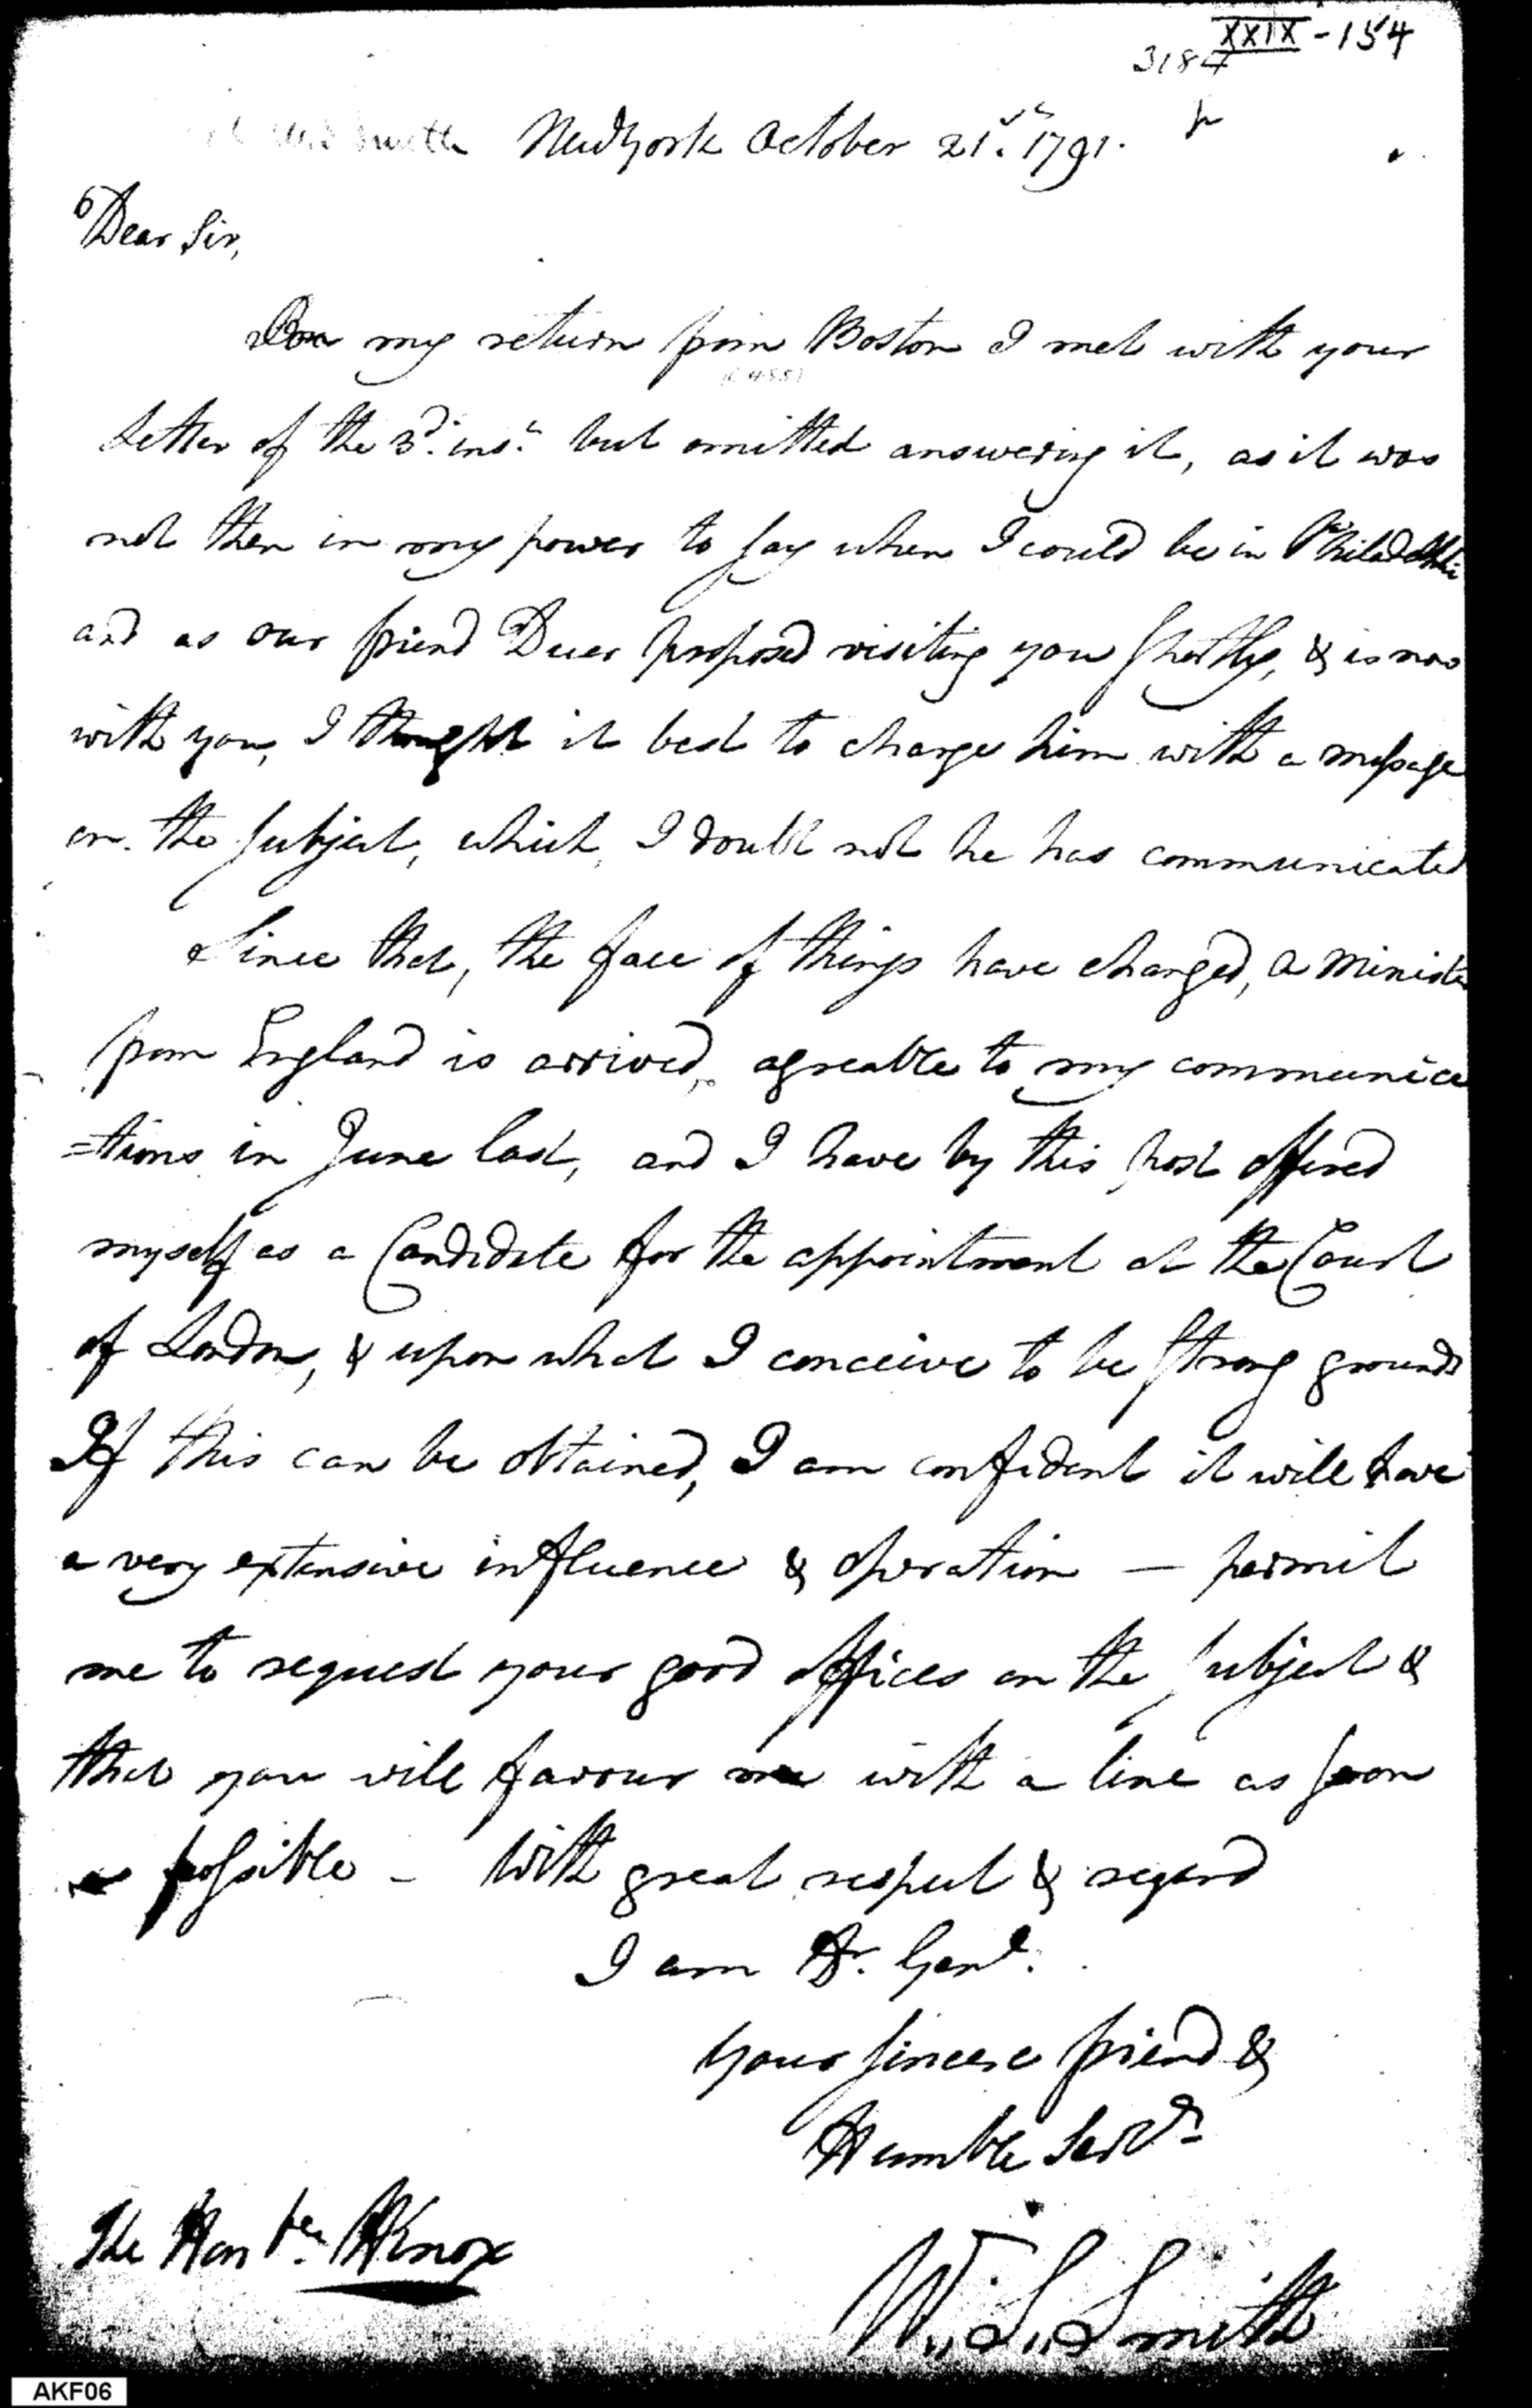 XXIX - 154
3184
Smith New York October 21st. 1791.
Dear Sir,
On my return from Boston I met with your
Letter of the 3d. inst. but omitted answering it, as it was
not then in my power to say when I could be in Philadelphi
and as our friend Duer proposed visiting you shortly, & is now
with you, I thought it best to charge him with a message
on the subject, which, I doubt not he has communicated
Since that, the face of things have changed, a Minister
from England is arrived, agreable to my communica
=tions in June last, and I have by this post offered
myself as a Candidate for the appointment at the Court
of London, & upon what I conceive to be strong grounds
If this can be obtained, I am confident it will have
a very extensive influence & operation — permit
me to request your good offices on the subject &
that you will favour me with a line as soon
as possible - With great respect & regard
I am Dr. Genl.
Your sincere friend &
Humble Servt.
The Honble. HKnox
W. S. Smith
AKF06